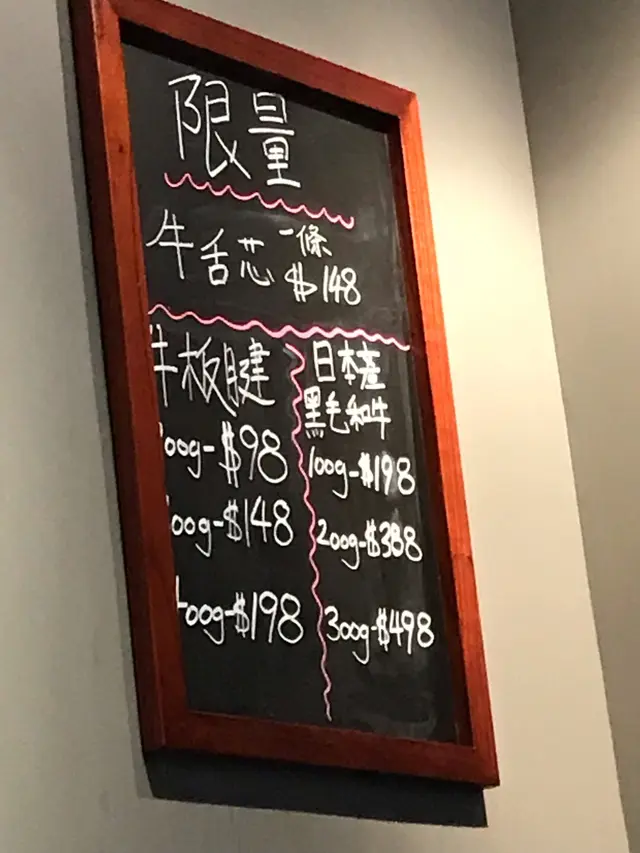 限量
牛舌芯 一條
$148
牛板腱
00g-$98
00g-$148
400g-$198
日本產
黑毛和牛
100g-$198
200g-$388
300g-$498